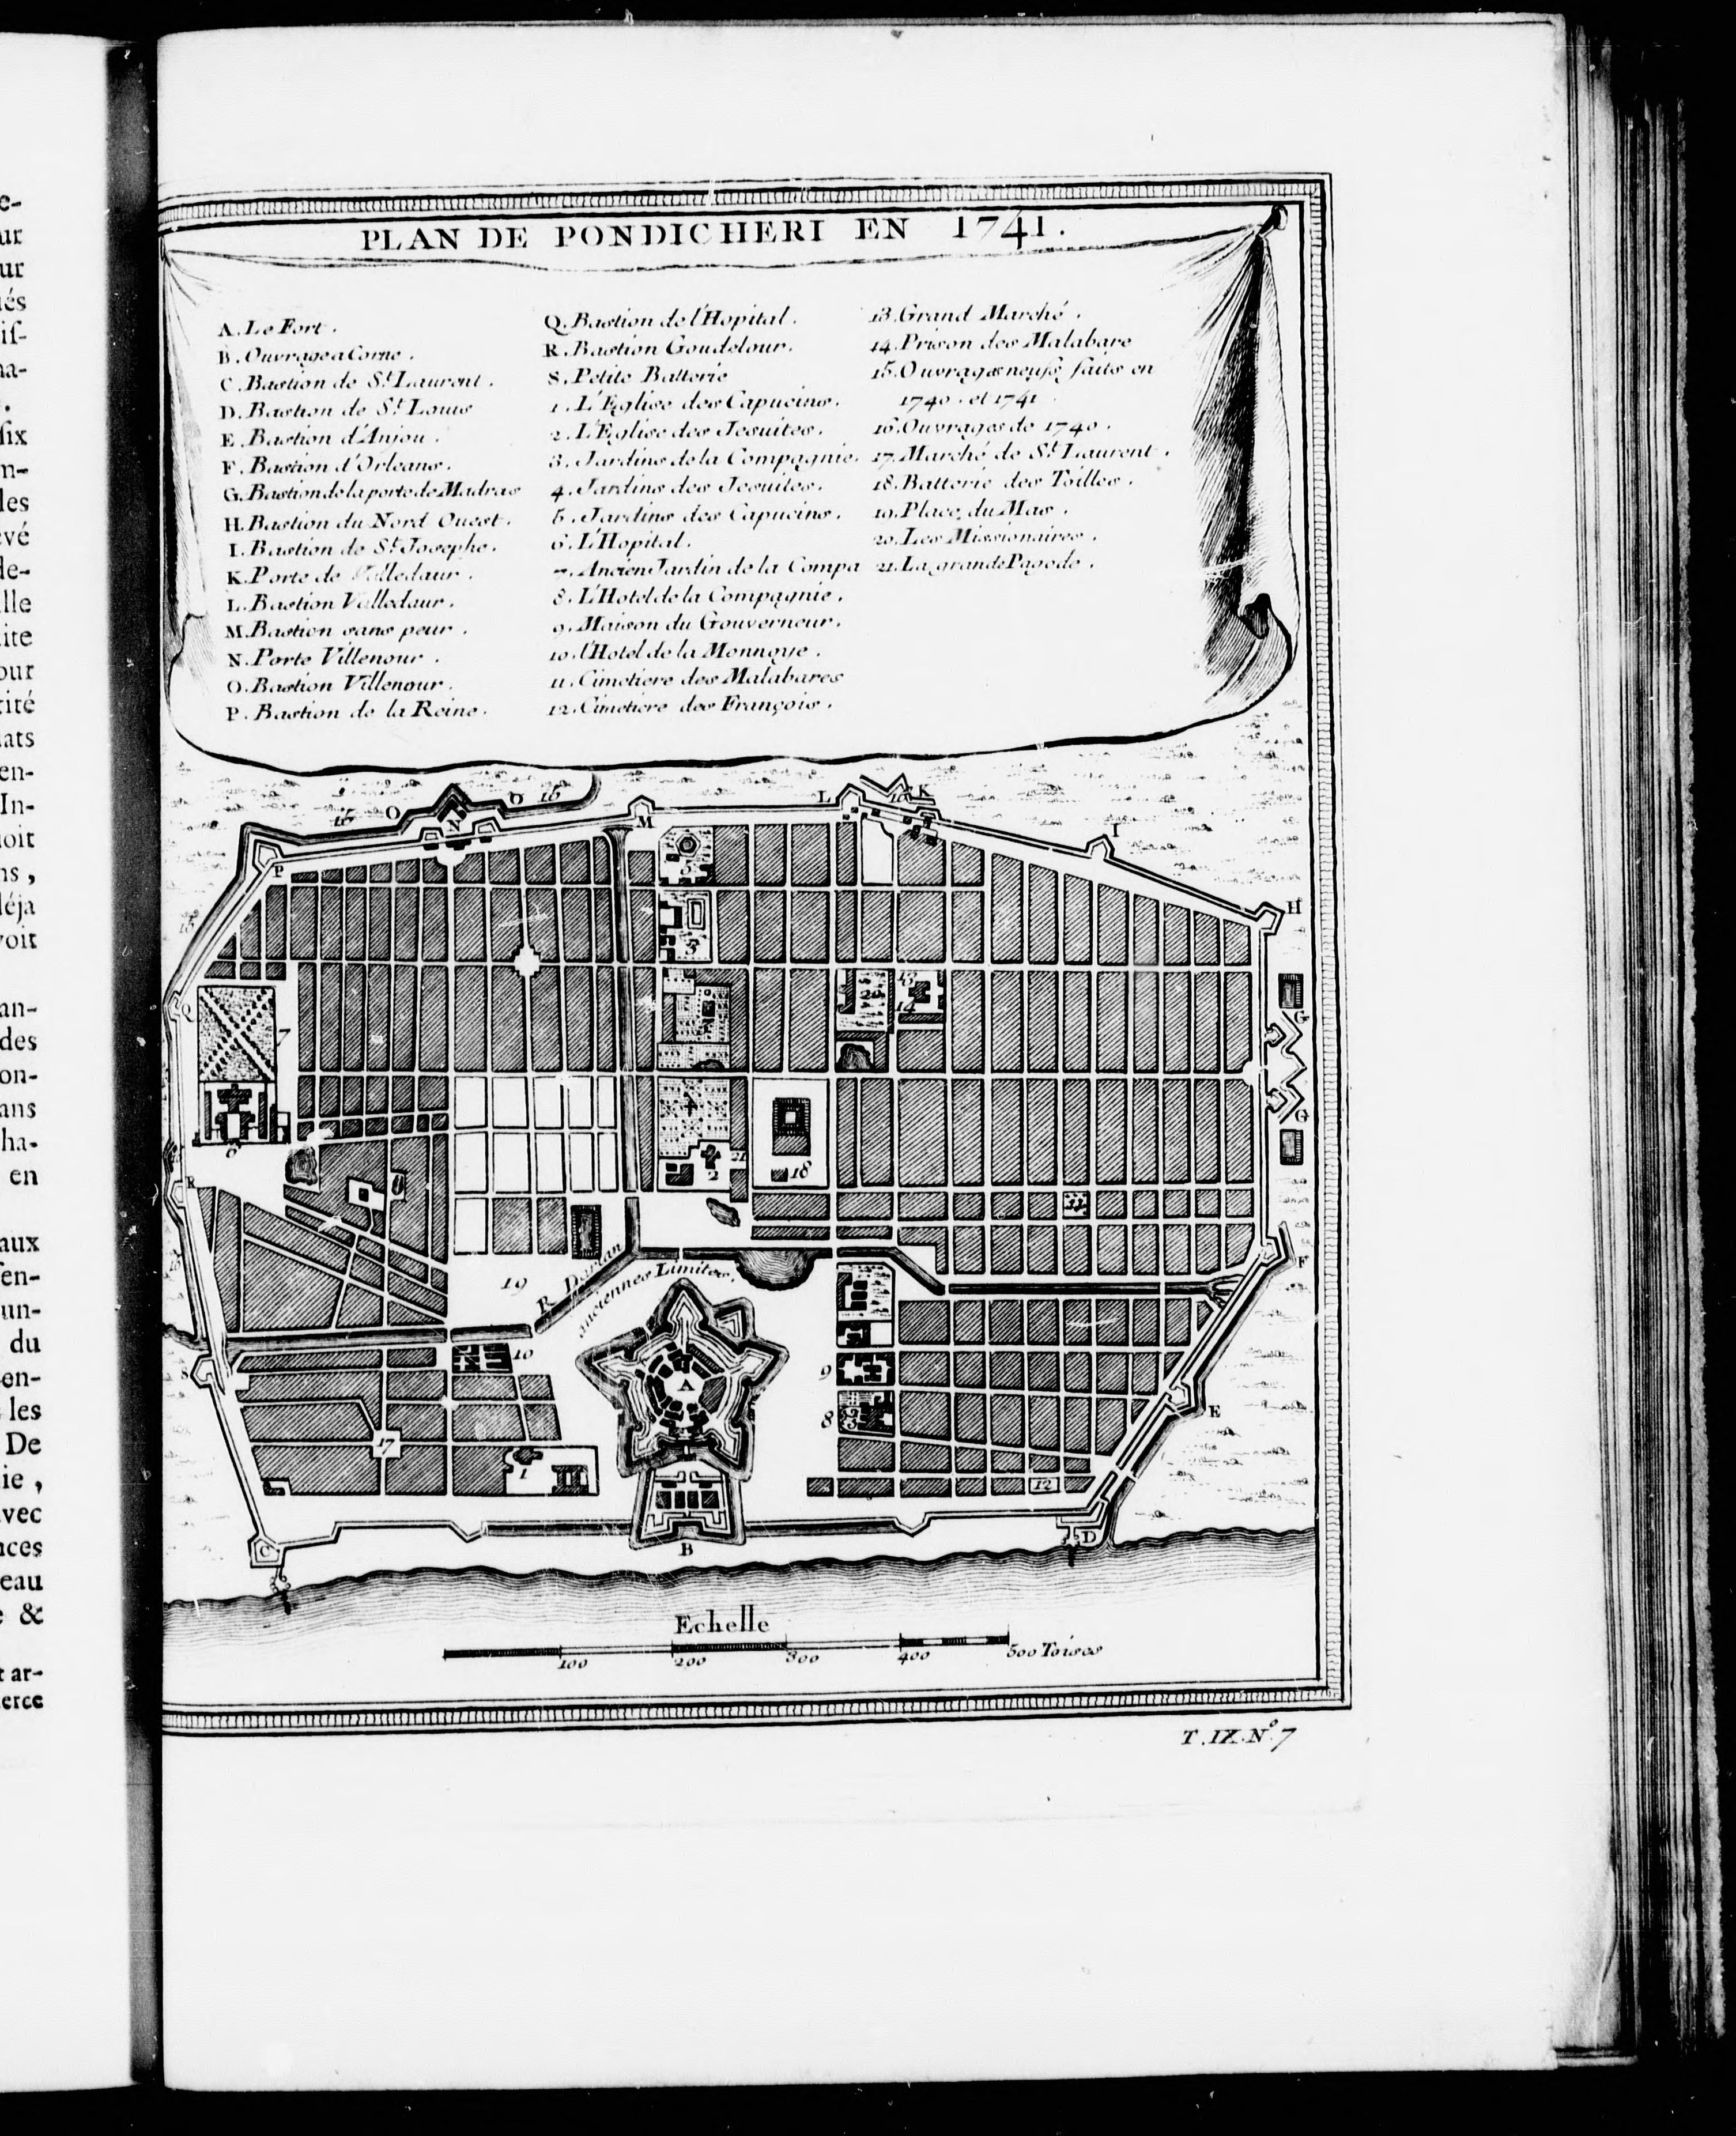 e-
ur
ur
ués
is-
na-
.
six
m-
les
evé
de-
ille
uite
our
tité
lats
en-
In-
noit
ns,
déja
voit
an-
des
on-
ans
ha-
en
aux
fen-
un-
du
en-
les
De
ie,
avec
nces
eau
e &
t ar-
erce
PLAN DE PONDICHERI EN 1741.
A. Le Fort.
B. Ouvrage a Corne.
C. Bastion de St. Laurent.
D. Bastion de St. Louis
E. Bastion d'Anjou.
F. Bastion d'Orleans.
G. Bastion de la porte de Madras
H. Bastion du Nord Ouest.
I. Bastion de St. Josephe.
K. Porte de Valledaur.
L. Bastion Valledaur.
M. Bastion sans peur.
N. Porte Villenour.
O. Bastion Villenour.
P. Bastion de la Reine.
Q. Bastion de l'Hopital.
R. Bastion Goudelour.
S. Petite Batterie
1. L'Eglise des Capucins.
2. L'Eglise des Jesuites.
3. Jardins de la Compagnie.
4. Jardins des Jesuites.
5. Jardins des Capucins.
6. L'Hopital.
7. Ancien Jardin de la Compa
8. L'Hotel de la Compagnie.
9. Maison du Gouverneur.
10. l'Hotel de la Monnoye.
11. Cimetiere des Malabares
12. Cimetiere des François.
13. Grand Marché.
14. Prison des Malabare
15. Ouvrages neufs faits en
1740. et 1741.
16. Ouvrages de 1740.
17. Marché de St. Laurent.
18. Batterie des Toilles.
19. Place du Mas.
20. Les Missionaires.
21. La grande Pagode.
16 O N O 16 M L 16 K I
P 5 H
15
3
Q 7 20 13 14 G
4 G
6 2 21 18
R 11
19 R. Darian Anciennes Limites. F
S 10 A 9
8 E
17 1 12
C B D
Echelle
100 200 300 400 500 Toises
T. IX. N.º 7